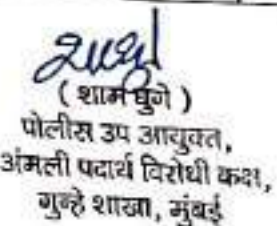 ( शाम घुगे )
पोलीस उप आयुक्त,
अंमली पदार्थ विरोधी कक्ष,
गुन्हे शाखा, मुंबई